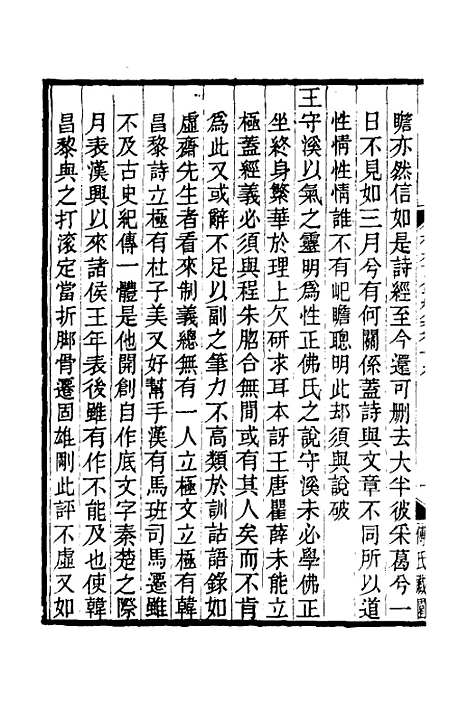 瞻亦然信如是詩經至今還可删去大半彼采葛兮一
日不見如三月兮有何關係蓋詩與文章不同所以道
性情性情誰不有屺瞻聰明此却須與說破
王守溪以氣之靈明為性正佛氏之說守溪未必學佛正
坐終身繁華於理上欠研求耳本訝王唐瞿薛未能立
極蓋經義必須與程朱脗合無間或有其人矣而不肯
為此又或辭不足以副之筆力不高類於訓詁語錄如
虛齋先生者看來制義總無有一人立極文立極有韓
昌黎詩立極有杜子美又好幫手漢有馬班司馬遷雖
不及古史紀傳一體是他開創自作底文字秦楚之際
月表漢興以來諸侯王年表後雖有作不能及也使韓
昌黎與之打滚定當折脚骨遷固雄剛此評不虛又如
傅氏藏園